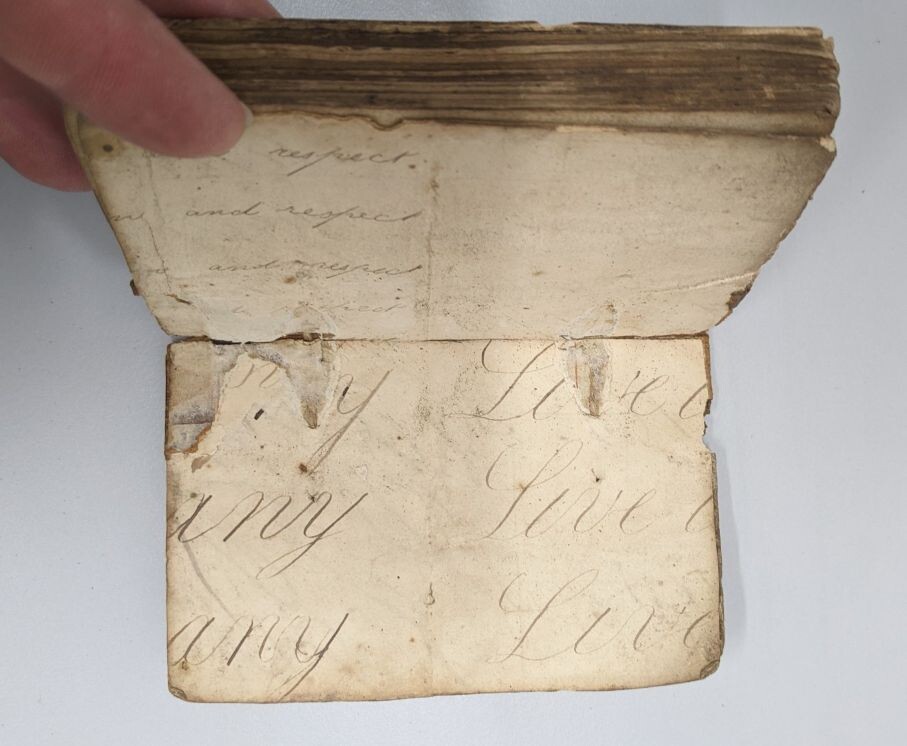 respect.
and respect
and respect
any Live
any Live
any Live